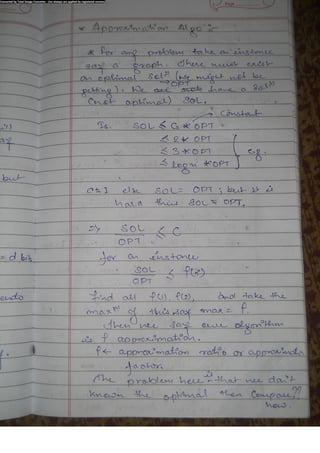 * Approximation Algo :-
* For any problem take an instance
say a graph. There must exist
an optimal Solⁿ (we might not be
→OPT
getting). We are have a solⁿ
(not optimal) SOL.
Constant
SOL ≤ C * OPT
≤ 2 * OPT
≤ 3 * OPT e.g.
≤ logn * OPT
else SOL = OPT; but it is
hard then SOL ≠ OPT.
but
⇒ SOL / OPT ≤ C
for an instance
SOL / OPT ≤ f(x)
Find all f(1), f(2), and take the
maxᵐ of this say max = f.
Then we say our algorithm
is f approximation.
f ← approximation ratio or approximatn
factor.
The problem here is that we don't
known the optimal then compare??
how.